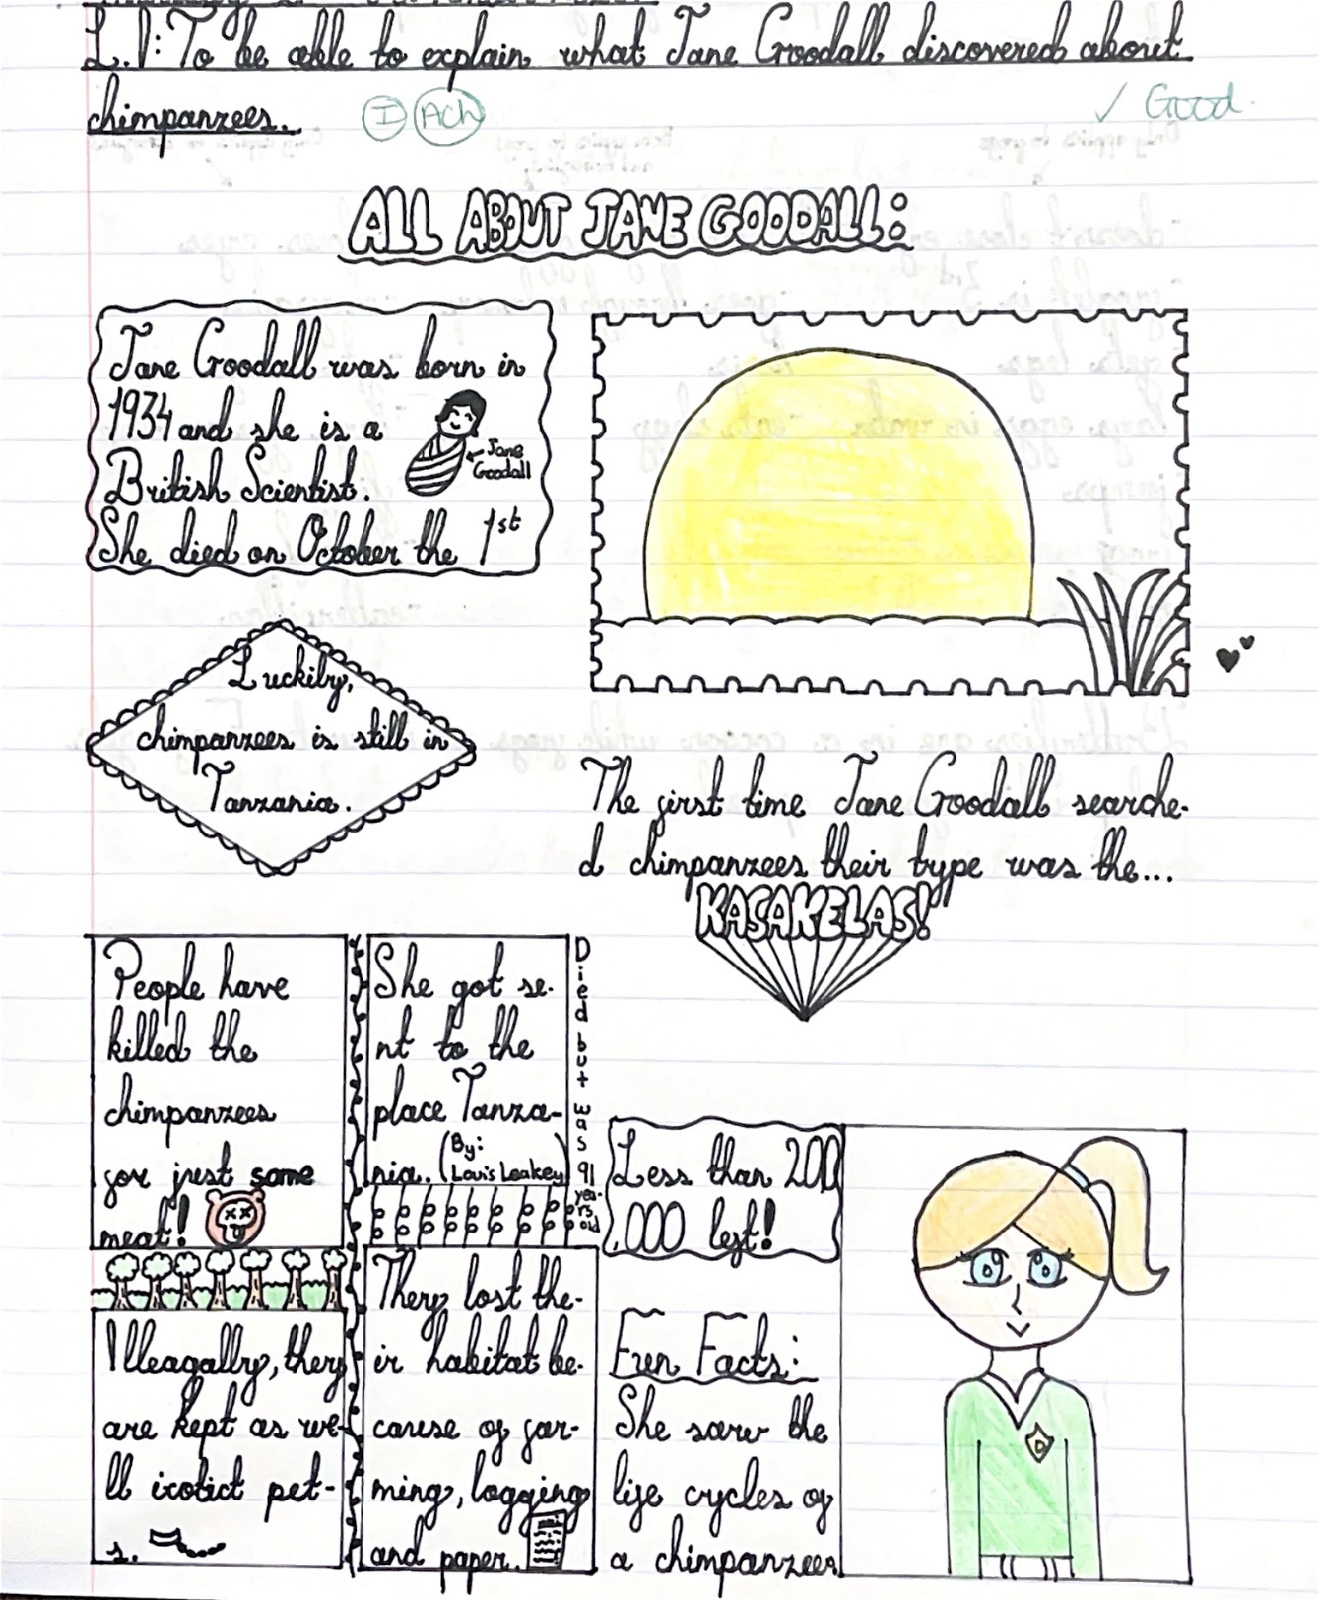 L.I: To be able to explain what Jane Goodall discovered about
chimpanzees.
I ACh
✓ Good.
ALL ABOUT JANE GOODALL:
Jane Goodall was born in
1934 and she is a
British Scientist.
She died on October the 1st
Jane
Goodall
Luckily,
chimpanzees is still in
Tanzania.
The first time Jane Goodall searche-
d chimpanzees their type was the...
KASAKELAS!
People have
killed the
chimpanzees
for just some
meat!
She got se-
nt to the
place Tanza-
nia. (By:
Louis Leakey)
Died but was 91 years old
Less than 200
,000 left!
Illeagally, they
are kept as we-
ll ixotict pet-
s.
They lost the-
ir habitat be-
cause of far-
ming, logging
and paper.
Fun Facts:
She saw the
life cycles of
a chimpanzees